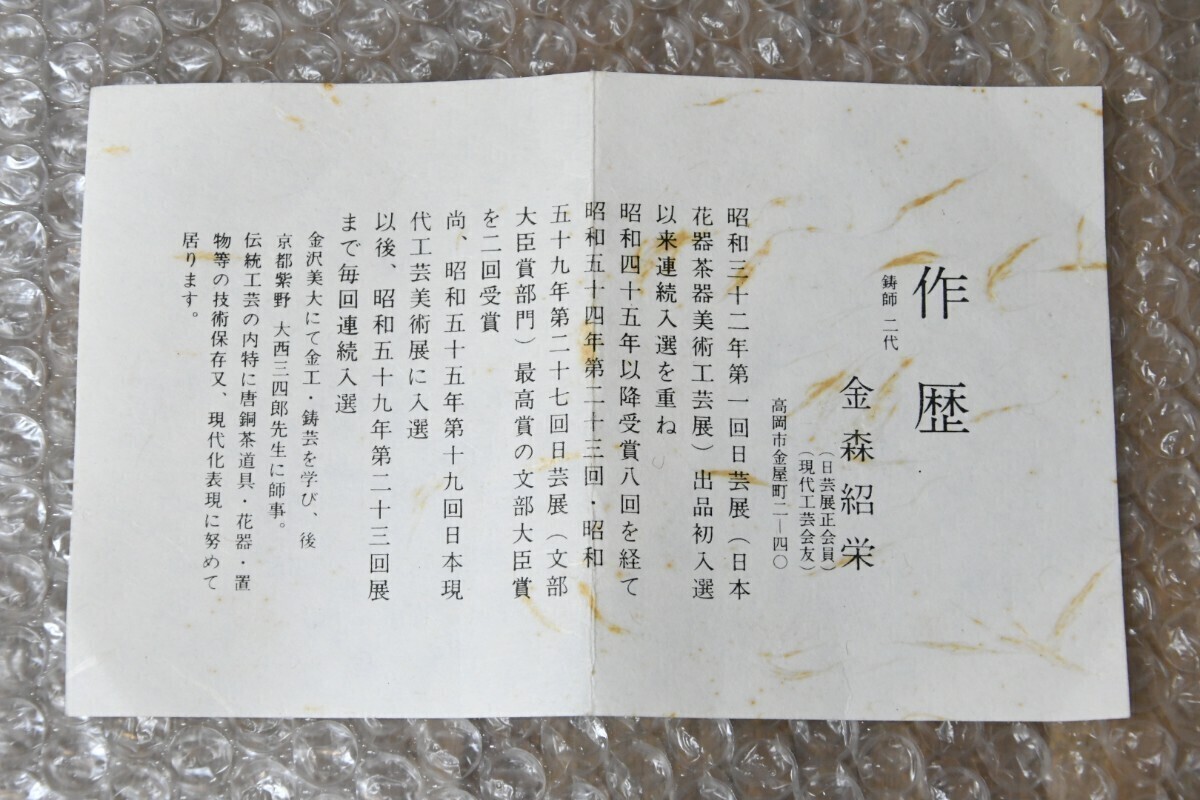 作歴
鋳師 二代
金森紹栄
(日芸展正会員)
(現代工芸会友)
高岡市金屋町二―四〇
昭和三十二年第一回日芸展(日本
花器茶器美術工芸展)出品初入選
以来連続入選を重ね
昭和四十五年以降受賞八回を経て
昭和五十四年第二十三回・昭和
五十九年第二十七回日芸展(文部
大臣賞部門)最高賞の文部大臣賞
を二回受賞
尚、昭和五十五年第十九回日本現
代工芸美術展に入選
以後、昭和五十九年第二十三回展
まで毎回連続入選
金沢美大にて金工・鋳芸を学び、後
京都紫野 大西三四郎先生に師事。
伝統工芸の内特に唐銅茶道具・花器・置
物等の技術保存又、現代化表現に努めて
居ります。